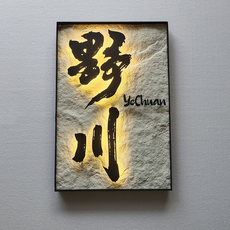 野
YeChuan
川